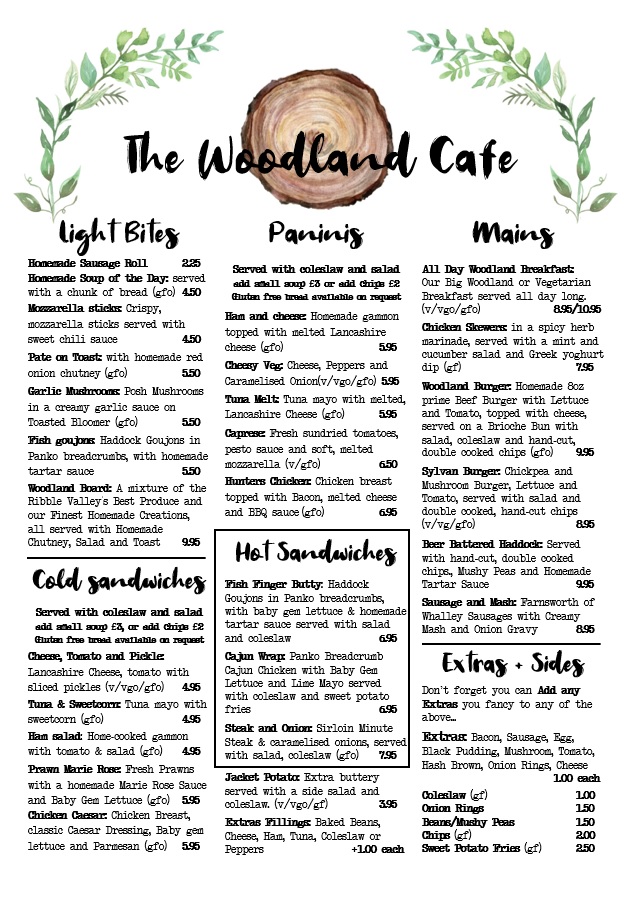 The Woodland Cafe
Light Bites
Homemade Sausage Roll 2.25
Homemade Soup of the Day: served
with a chunk of bread (gfo) 4.50
Mozzarella sticks: Crispy,
mozzarella sticks served with
sweet chili sauce 4.50
Pate on Toast: with homemade red
onion chutney (gfo) 5.50
Garlic Mushrooms: Posh Mushrooms
in a creamy garlic sauce on
Toasted Bloomer (gfo) 5.50
Fish goujons: Haddock Goujons in
Panko breadcrumbs, with homemade
tartar sauce 5.50
Woodland Board: A mixture of the
Ribble Valley's Best Produce and
our Finest Homemade Creations,
all served with Homemade
Chutney, Salad and Toast 9.95
Cold sandwiches
Served with coleslaw and salad
add small soup £3, or add Chips £2
Gluten free bread available on request
Cheese, Tomato and Pickle:
Lancashire Cheese, tomato with
sliced pickles (v/vgo/gfo) 4.95
Tuna & Sweetcorn: Tuna mayo with
sweetcorn (gfo) 4.95
Ham salad: Home-cooked gammon
with tomato & salad (gfo) 4.95
Prawn Marie Rose: Fresh Prawns
with a homemade Marie Rose Sauce
and Baby Gem Lettuce (gfo) 5.95
Chicken Caesar: Chicken Breast,
classic Caesar Dressing, Baby gem
lettuce and Parmesan (gfo) 5.95
Paninis
Served with coleslaw and salad
add small soup £3 or add Chips £2
Gluten free bread available on request
Ham and cheese: Homemade gammon
topped with melted Lancashire
cheese (gfo) 5.95
Cheesy Veg: Cheese, Peppers and
Caramelised Onion(v/vgo/gfo) 5.95
Tuna Melt: Tuna mayo with melted,
Lancashire Cheese (gfo) 5.95
Caprese: Fresh sundried tomatoes,
pesto sauce and soft, melted
mozzarella (v/gfo) 6.50
Hunters Chicken: Chicken breast
topped with Bacon, melted cheese
and BBQ sauce (gfo) 6.95
Hot Sandwiches
Fish Finger Butty: Haddock
Goujons in Panko breadcrumbs,
with baby gem lettuce & homemade
tartar sauce served with salad
and coleslaw 6.95
Cajun Wrap: Panko Breadcrumb
Cajun Chicken with Baby Gem
Lettuce and Lime Mayo served
with coleslaw and sweet potato
fries 6.95
Steak and Onion: Sirloin Minute
Steak & caramelised onions, served
with salad, coleslaw (gfo) 7.95
Jacket Potato: Extra buttery
served with a side salad and
coleslaw. (v/vgo/gf) 3.95
Extras Fillings: Baked Beans,
Cheese, Ham, Tuna, Coleslaw or
Peppers +1.00 each
Mains
All Day Woodland Breakfast:
Our Big Woodland or Vegetarian
Breakfast served all day long.
(v/vgo/gfo) 8.95/10.95
Chicken Skewers: in a spicy herb
marinade, served with a mint and
cucumber salad and Greek yoghurt
dip (gf) 7.95
Woodland Burger: Homemade 8oz
prime Beef Burger with Lettuce
and Tomato, topped with cheese,
served on a Brioche Bun with
salad, coleslaw and hand-cut,
double cooked chips (gfo) 9.95
Sylvan Burger: Chickpea and
Mushroom Burger, Lettuce and
Tomato, served with salad and
double cooked, hand-cut chips
(v/vg/gfo) 8.95
Beer Battered Haddock: Served
with hand-cut, double cooked
chips, Mushy Peas and Homemade
Tartar Sauce 9.95
Sausage and Mash: Farnsworth of
Whalley Sausages with Creamy
Mash and Onion Gravy 8.95
Extras + Sides
Don't forget you can Add any
Extras you fancy to any of the
above...
Extras: Bacon, Sausage, Egg,
Black Pudding, Mushroom, Tomato,
Hash Brown, Onion Rings, Cheese
1.00 each
Coleslaw (gf) 1.00
Onion Rings 1.50
Beans/Mushy Peas 1.50
Chips (gf) 2.00
Sweet Potato Fries (gf) 2.50